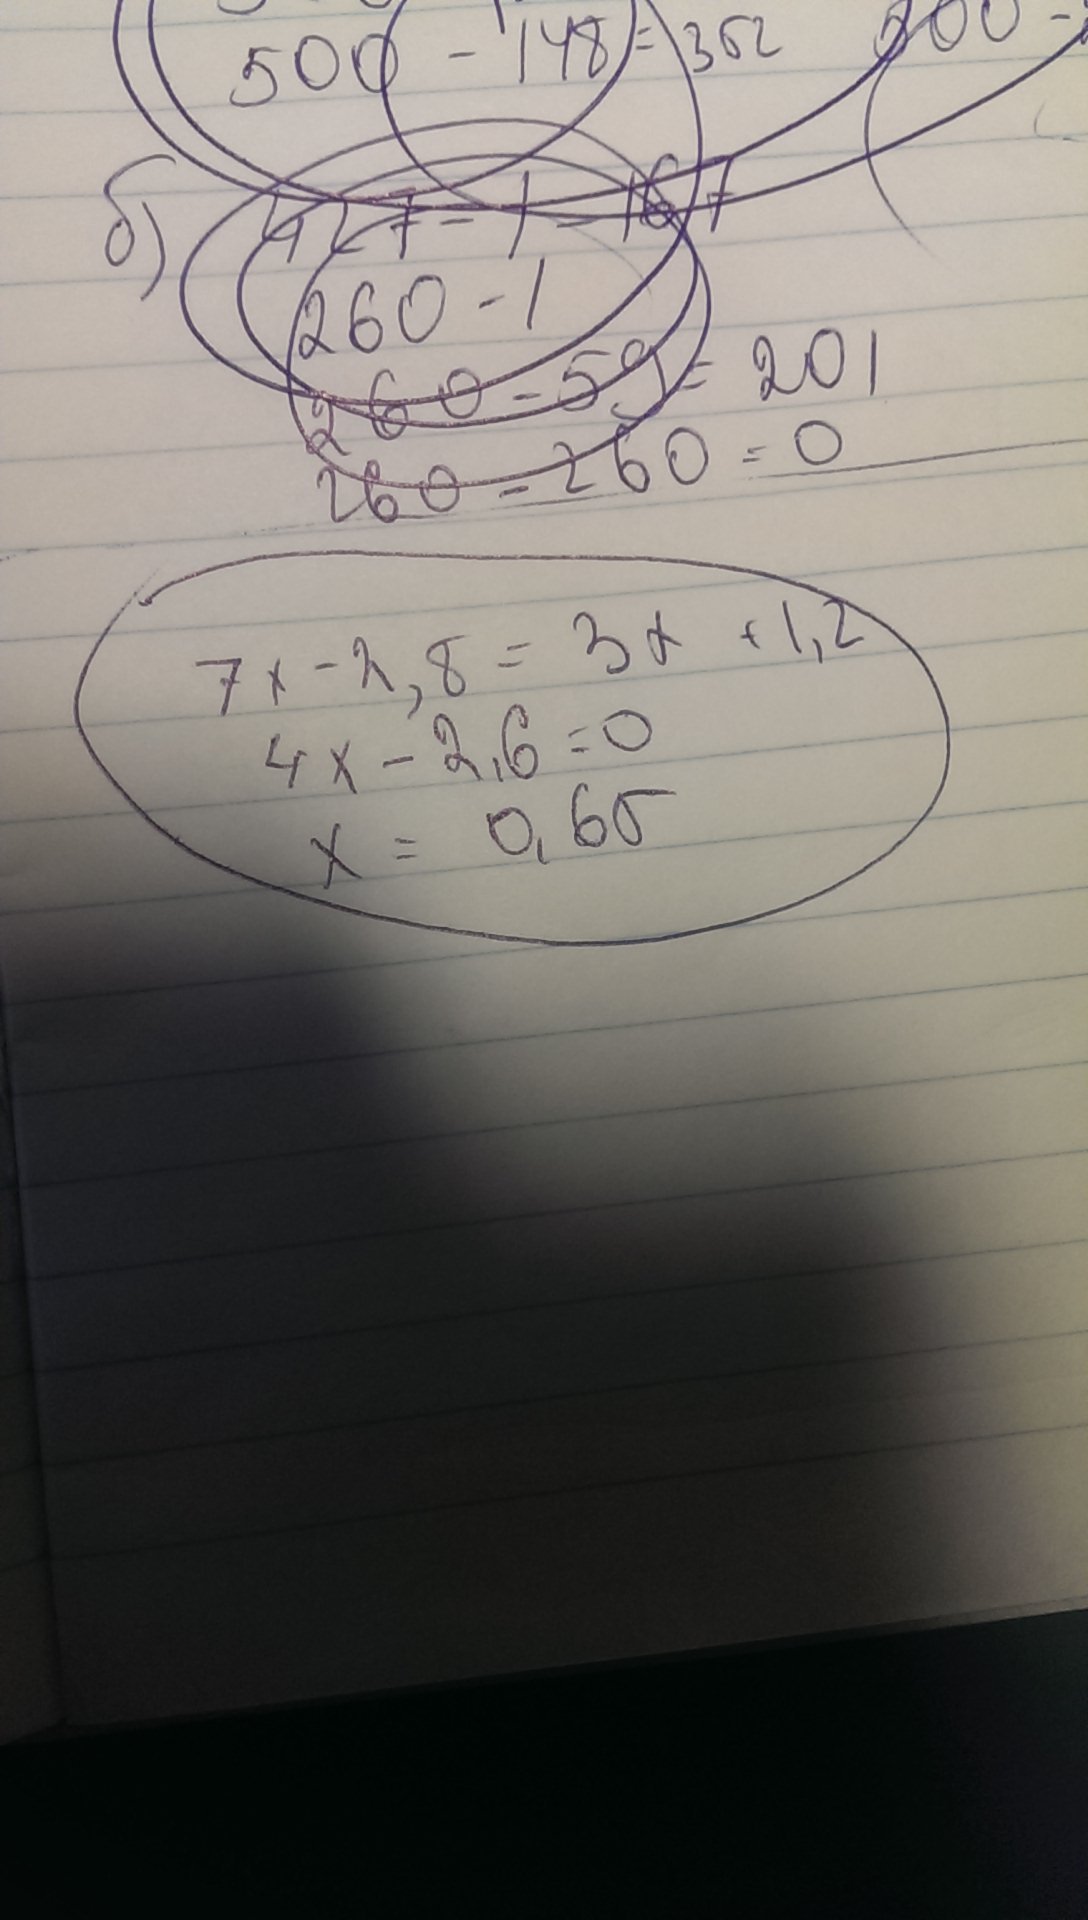 500 - 148 = 352
б) 427 - 1 = 167
260 - 1
260 - 59 = 201
260 - 260 = 0
7x - 2,8 = 3x + 1,2
4x - 2,6 = 0
x = 0,65